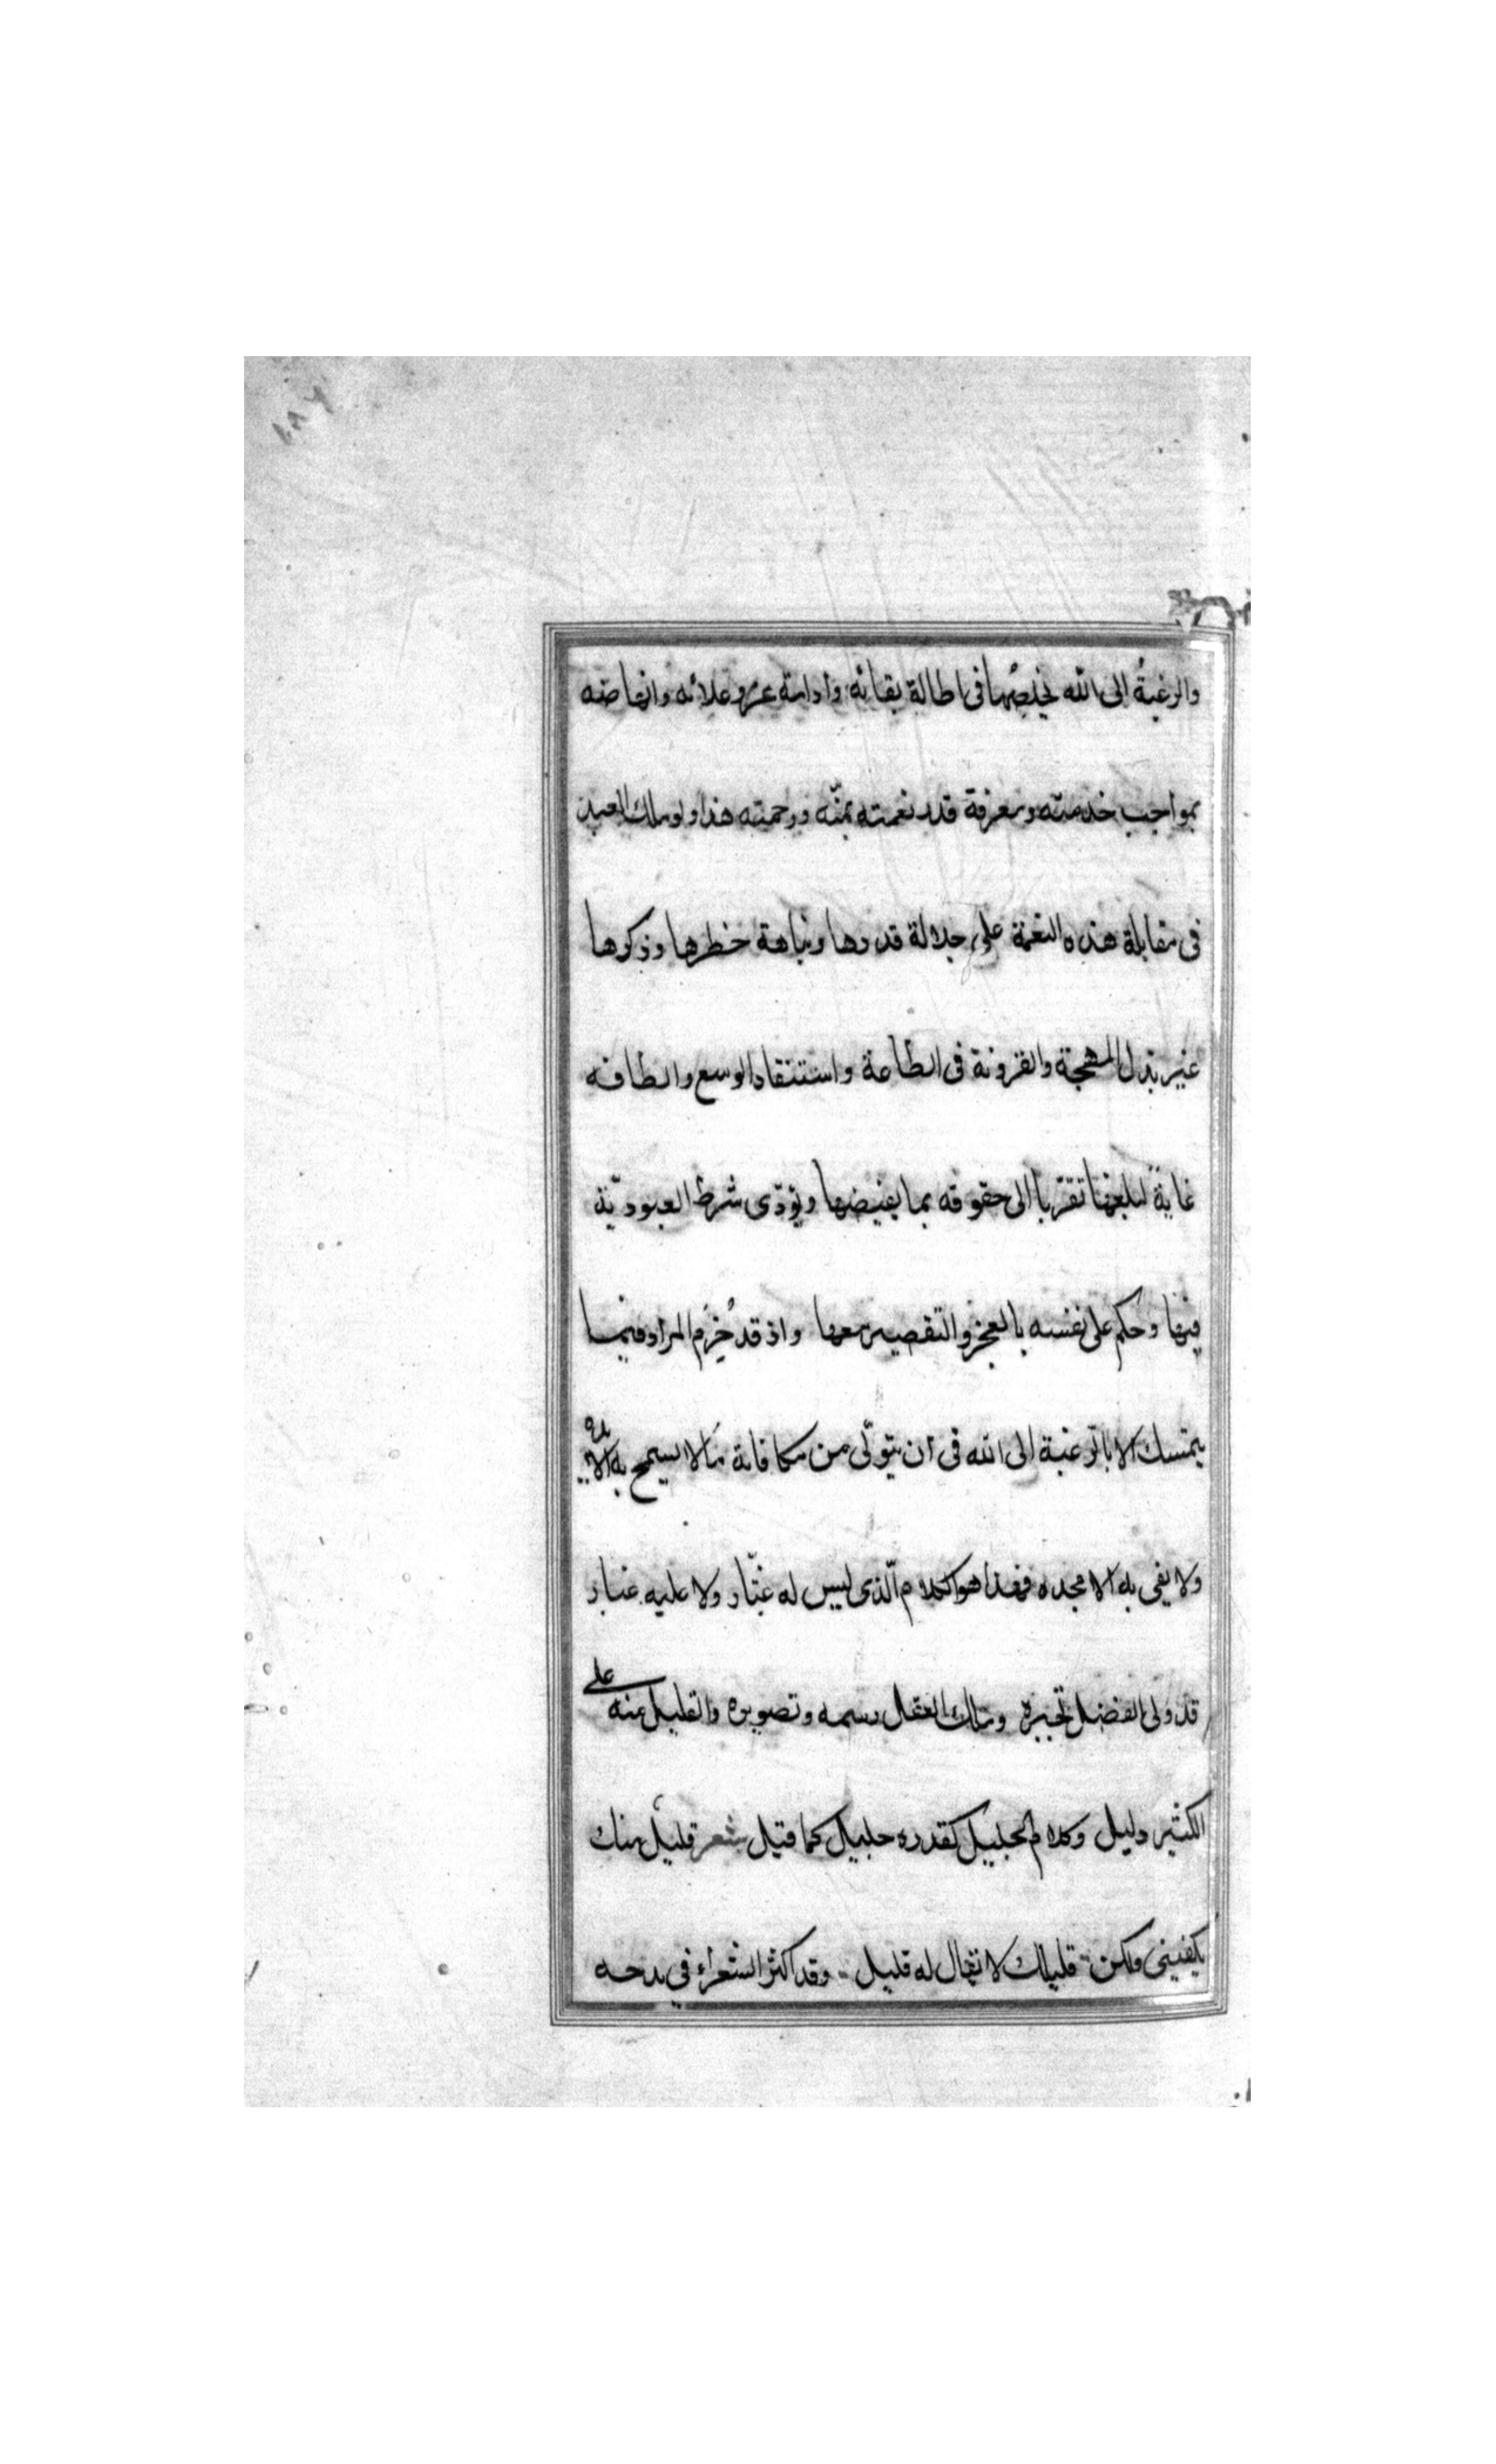 ١٨٧
والرغبةُ الى الله يخلصُها فى اطالة بقائه وادامة عزه وعلائه وانهاضه
بمواجب خدمته ومعرفة قدر نعمته بمنّه ورحمته هذا ولو ملك العبد
فى مقابلة هذه النعمة على جلالة قدرها ونباهة خطرها وذكرها
غير بذل المهجة والقرونة فى الطاعة واستنفاد الوسع والطاقه
غاية لبلغها تقرّبا الى حقوقه بما يفيضها ويؤدّى شرط العبوديّة
فيها وحكم على نفسه بالعجز والتقصير معها واذ قد حُرم المراد فيما
يتمسك الا بالرغبة الى الله فى ان يتولّى من مكافاته ما لا يسمح به الا يده
ولا يفى به الا مجده فهذا هو الكلام الّذى ليس له غبّار ولا عليه غبار
قد ولى الفضل تحبيره وملك العقل رسمه وتصويره والقليل منه على
الكثير دليل وكلام الجليل كقدره جليل كما قيل شعر قليل منك
يكفينى ولكن قليلك لا يقال له قليل وقد اكثر الشعراء في مدحه